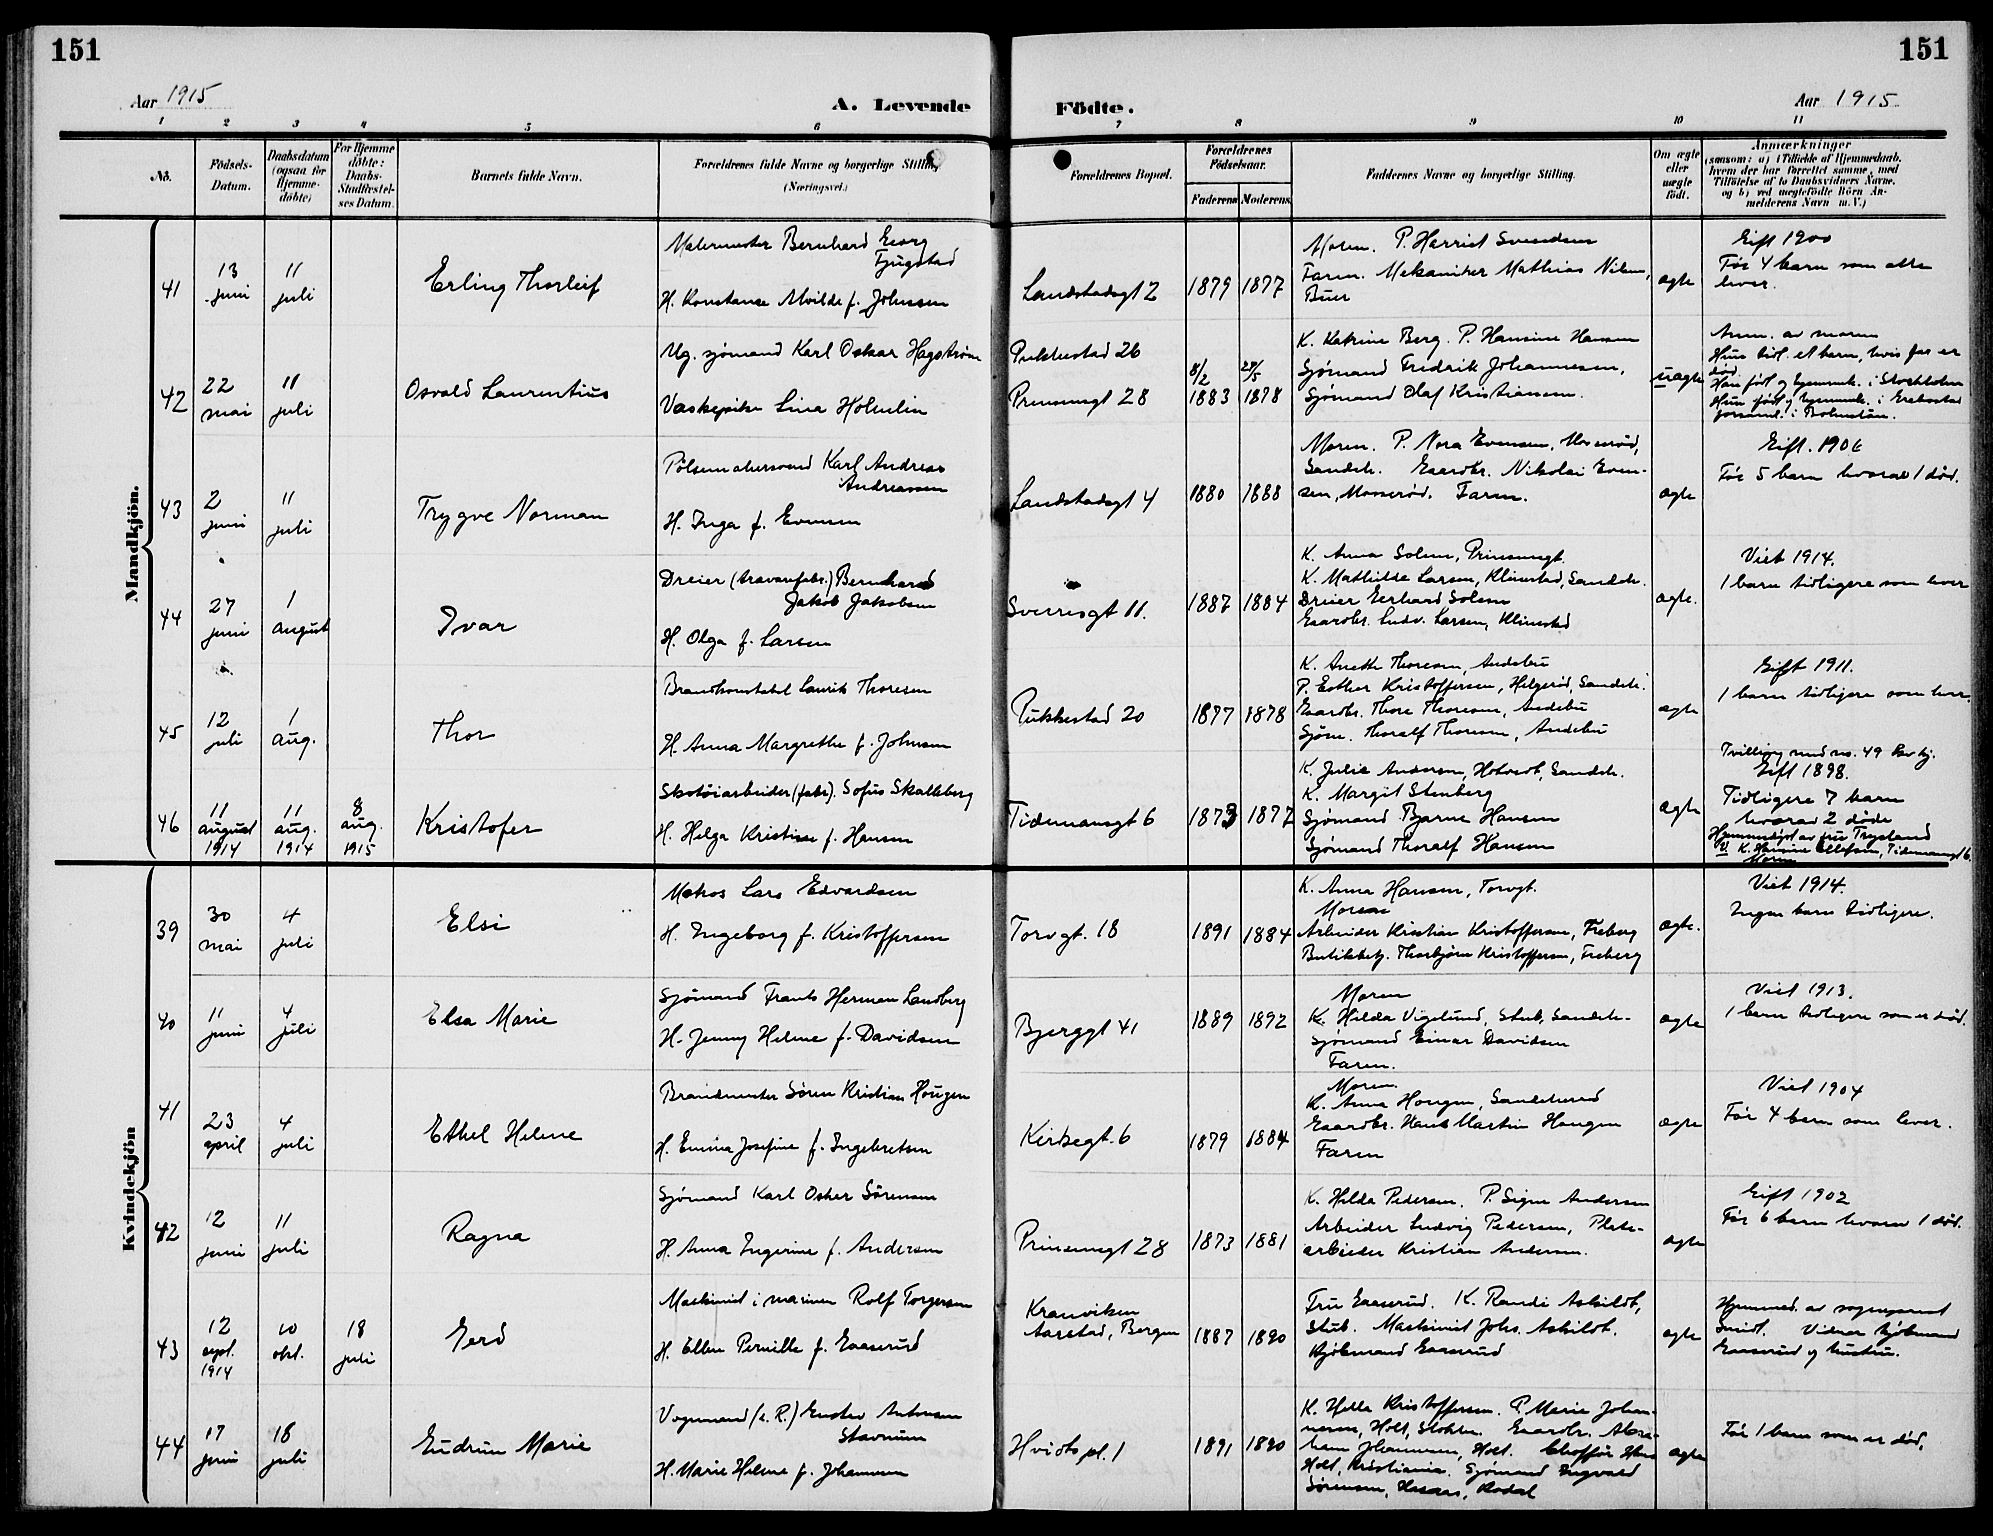 151
151
Aar 1915
A. Levende Födte.
Aar 1915
1 2 3 4 5 6 7 8 9 10 11
No.
Födsels-Datum.
Daabsdatum (ogsaa för Hjemme-döbte)
For Hjemme döbte: Daabs-Stadfæstel-ses Datum.
Barnets fulde Navn.
Forældrenes fulde Navne og borgerlige Stilling (Næringsvei.)
Forældrenes Bopæl.
Forældrenes Födselsaar.
Faderens Moderens
Faddernes Navne og borgerlige Stilling.
Om ægte eller uægte födt.
Anmærkninger
(saasom: a) i Tilfælde af Hjemmedaab.
hvem der har forrettet samme, med
Tilföielse af to Daabsvidners Navne.
og b) ved uægtefödte Börn An-
melderens Navn m. V.)
Mandkjön.
41
13 juni
11 juli
Erling Thorleif
Malermester Bernhard Georg
Fjugstad
H. Konstanse Alvilde f. Johnsen
Landstadsgt 2
1879 1877
Moren. P. Harriet Svendsen
Faren. Mekaniker Mathias Nilsen,
Buer
ægte
Gift 1900
Før 4 barn som alle
lever.
42
22 mai
11 juli
Osvald Laurentius
Ug. sjømand Karl Oskar Hagstrøm
Vaskepike Lina Holmlin
Pukkestad 26
Prinsensgt 28
8/2 1883
1878
K. Katrine Berg. P. Hansine Hansen
Sjømand Fredrik Johannesen,
Sjømand Olaf Kristiansen.
uægte
Anm. av moren
Hun tidl. et barn, hvis far er
død.
Han født og hjemmeh. i Stockholm
Hun født og hjemmeh. i
43
2 juni
11 juli
Trygve Norman
Pølsemakersvend Karl Andreas
Andreassen
H. Inga f. Evensen
Landstadsgt 4
1880 1888
Moren. P. Nora Evensen, Mosserød,
Sandeh. Gaardbr. Nikolai Even-
sen, Mosserød. Faren.
ægte
Gift. 1906
Før 5 barn hvorav 1 død.
44
27 juni
1 august
Ivar
Dreier (travarefabr.) Bernhard
Jakob Jakobsen
H. Olga f. Larsen
Sverresgt 11.
1887 1884
K. Anna Solem, Prinsensgt.
K. Mathilde Larsen, Klinestad, Sandeh.
Dreier Gerhard Solem
Gaardbr. Ludv. Larsen, Klinestad
ægte.
Viet 1914.
1 barn tidligere som lever
45
12 juli
1 aug.
Thor
Brandkonstabel Laurits Thoresen
H. Anna Margrethe f. Johnsen
Pukkestad 20
1877 1878
K. Anette Thoresen, Andebu
P. Esther Kristoffersen, Helgerød, Sandeh.
Gaardbr. Thore Thoresen, Andebu
Sjøm. Thoralf Thoresen, Andebu
ægte
Gift 1911.
1 barn tidligere som lever.
46
11 august 1914
11 aug. 1914
8 aug. 1915
Kristofer
Skotøiarbeider (fabr). Sofus Skalleberg
H. Helga Kristine f. Hansen
Tidemansgt 6
1873 1877
K. Julie Andersen, Hotvedt, Sandeh.
K. Margit Stenberg
Sjømand Bjarne Hansen
Sjømand Thoralf Hansen
ægte
Tvilling med no. 49 kv kj.
Gift 1898.
Tidligere 7 barn
hvorav 2 døde
Hjemmedøpt av fru Trysland
V. K. Hansine Ellefsen, Tidemansgt 6
Moren
Kvindekjön
39
30 mai
4 juli
Elsi
Matros Lars Edvardsen
H. Ingeborg f. Kristoffersen
Torvgt. 18
1891 1884
K. Anna Hansen, Torvgt.
Moren
Arbeider Kristian Kristoffersen, Freberg
Butikbetj. Thorbjørn Kristoffersen, Freberg
ægte.
Viet 1914.
Ingen barn tidligere.
40
11 juni
4 juli
Elsa Marie
Sjømand Frants Herman Landberg
H. Jenny Helene f. Davidsen
Bjerggt 41
1889 1892
Moren
K. Hilda Vigelund, Stub, Sandeh.
Sjømand Einar Davidsen
Faren.
ægte
Viet 1913.
1 barn tidligere som er død.
41
23 april
4 juli
Ethel Helene
Brandmester Søren Kristian Haugen
H. Emma Josefine f. Ingebretsen
Kirkegt. 6
1879 1884
Moren.
K. Anna Haugen, Sandeherred
Gaardbr. Hans Martin Haugen
Faren
ægte
Viet 1904
Før 4 barn som lever.
42
12 juni
11 juli
Ragna
Sjømand Karl Oskar Sørensen
H. Anna Ingerine f. Andersen
Prinsensgt 28
1873 1881
K. Hilda Pedersen. P. Signe Andersen
Arbeider Ludvig Pedersen, Plate-
arbeider Kristian Andersen.
ægte
Gift 1902
Før 6 barn hvorav 1 død.
43
12 sept. 1914
10 okt.
18 juli
Gerd
Maskinist i marinen Rolf Torgersen
H. Ellen Pernille f. Gaaserud
Kranviken
Aarstad, Bergen
1887 1890
Fru Gaaserud. K. Randi Askildt,
Stub. Maskinist Johs. Askildt.
Kjøbmand Gaaserud
ægte
Hjemmed. av sogneprest
Smidt. Vidner kjøbmand
Gaaserud og hustru.
44
17 juni
18 juli
Gudrun Marie
Vognmand (u. R.) Gustav Antonsen
Stavnum
H. Marie Helene f. Johannesen
Hvidts pl. 1
1891 1890
K. Helle Kristoffersen. P. Marie Johan-
nesen, Holt, Stokke. Gaardbr. Abra-
ham Johannesen, Holt. Chauffør Hans
Holt, Kristiania. Sjømand Ingvald
Sørensen,
ægte
Før 1 barn som er død.